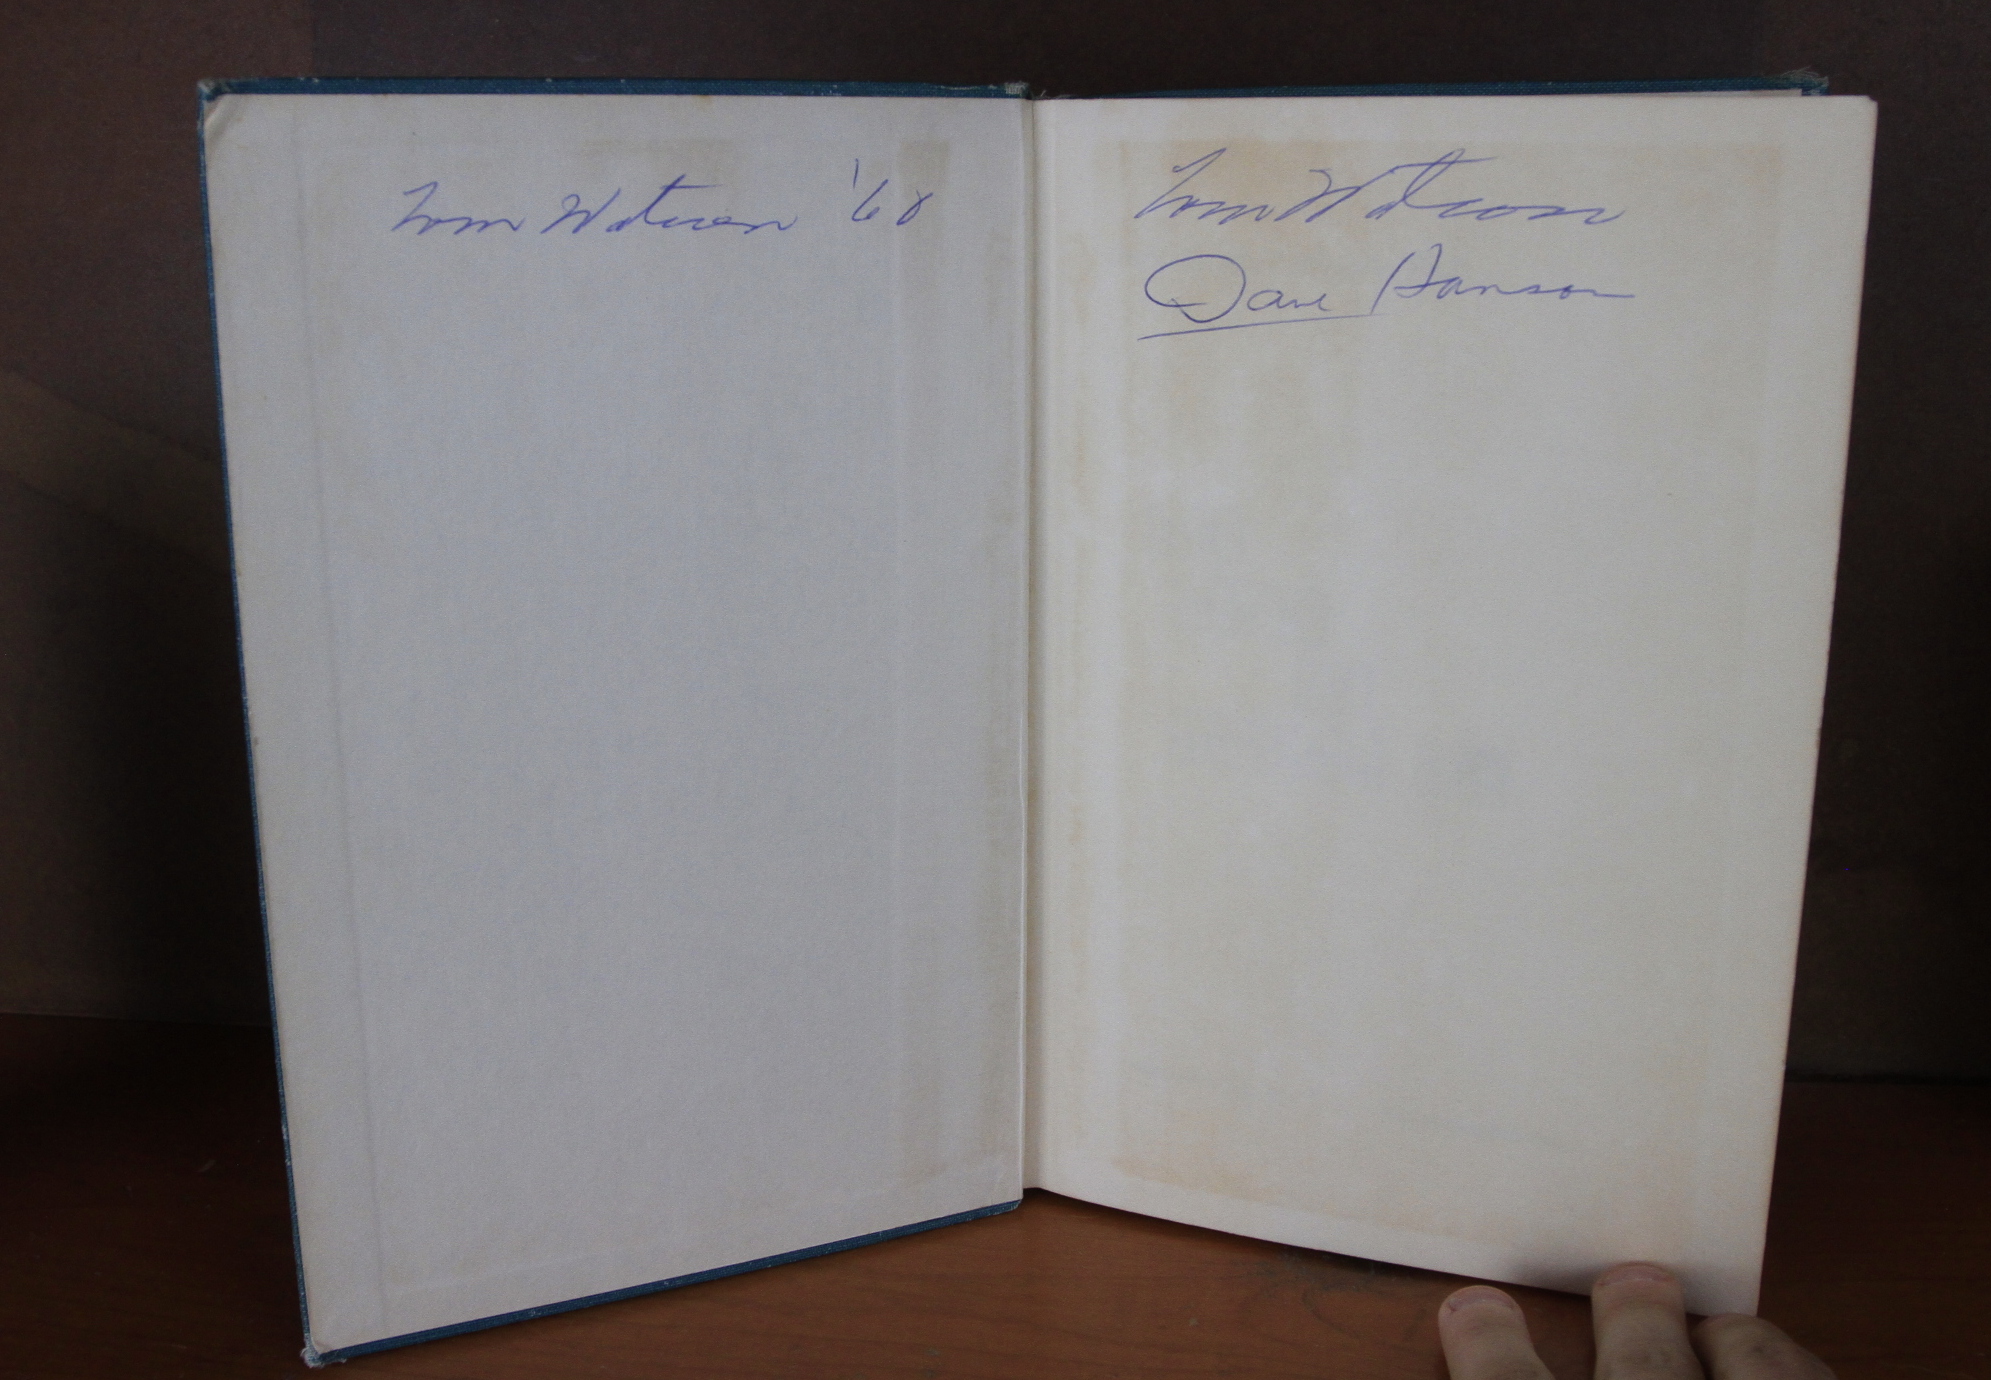 Tom Watson '68
Tom Watson
Dave Hanson